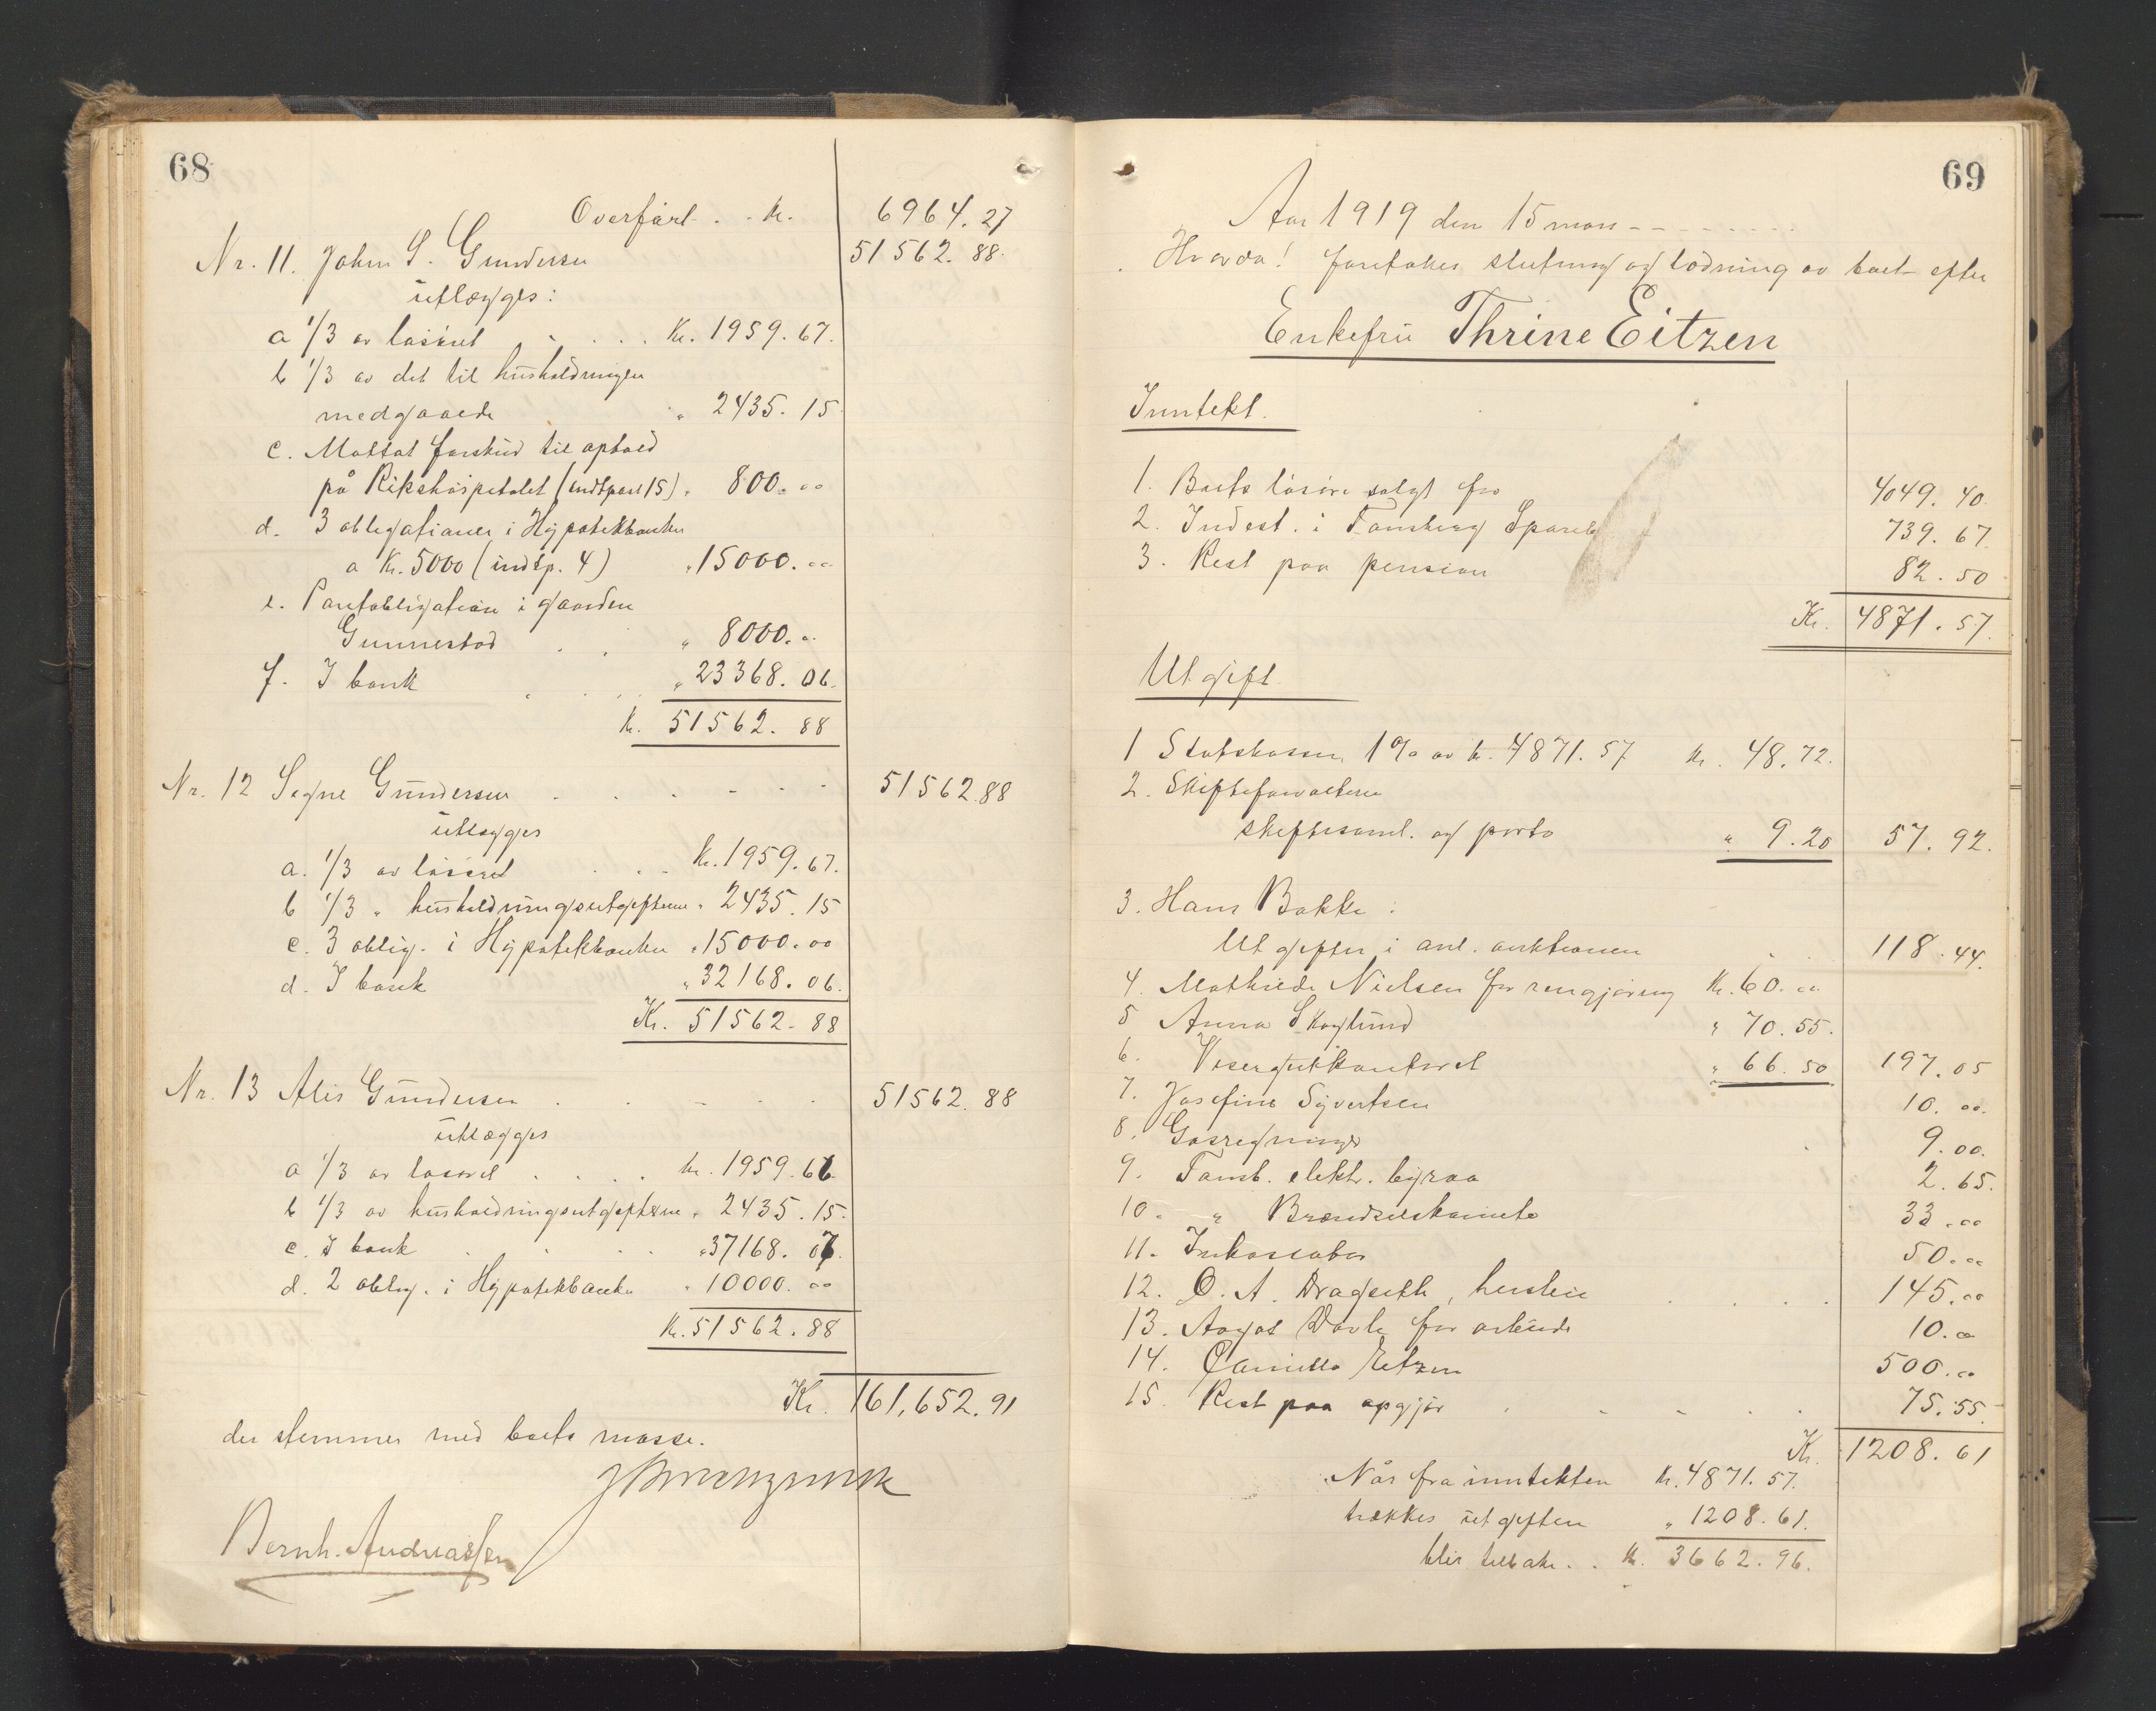 68
Overført . . kr. 6964.27
Nr. 11. Johan S. Gundersen 51562.88
utlægges:
a 1/3 av løsøret . . . . Kr. 1959.67.
b 1/3 av det til husholdningen
medgaaede " 2435.15
c. Mottat forskud til ophold
på Rikshospitalet (indtpost 15) " 800.00
d. 3 obligationer i Hypotekbanken
a Kr. 5000 (indtp. 4) " 15000.00
e. Pantobligation i gaarden
Gunnestad . . " 8000.00
f. I bank . . . . " 23368.06.
kr. 51562.88
Nr. 12 Signe Gundersen . . . . . . 51562.88
utlægges
a. 1/3 av løsøret . . . Kr. 1959.67.
b 1/3 " husholdningsutgiftene " 2435.15
c. 3 oblig. i Hypotekbanken " 15000.00
d. I bank " 32168.06.
Kr. 51562.88
Nr. 13 Alis Gundersen . . . . . 51562.88
utlægges
a 1/3 av løsøret . . . . kr. 1959.66
b 1/3 av husholdningsutgiftene " 2435.15.
c. I bank . . . . " 37168.07.
d. 2 oblig. i Hypotekbanken " 10000.00
Kr. 51562.88
Kr. 161,652.91
der stemmer med boets masse.
Bernh. Andreassen
69
Aar 1919 den 15 mars - - - - - - - -
Hvorda! foretokes slutning og lodning av boet efter
Enkefru Thrine Eitzen
Inntekt.
1. Boets løsøre solgt for 4049.40.
2. Indest. i Tønsberg Spareb 739.67.
3. Rest paa pension 82.50
Kr. 4871.57.
Utgift
1 Statskassen 1% av kr. 4871.57 kr. 48.72.
2. Skifteforvalteren
skiftesaml. og porto " 9.20 57.92.
3. Hans Bakke :
Utgifter i anl. auktionen . . 118.44.
4. Mathilde Nielsen for rengjøring Kr. 60.00
5 Anna Skoglund " 70.55.
6. Visergutkontoret " 66.50 197.05
7. Josefine Syvertsen 10.00.
8. Gasregninger . 9.00.
9. Tønsb. elektr. byraa 2.65.
10. " Brændselskomite 33.00
11. Inkassator 50.00
12. O. A. Dragseth, husleie . . . . 145.00
13. Aagot Dovle for arbeide 10.00
14. Camilla Eitzen 500.00
15. Rest paa opgjør . . . . . 75.55.
Kr. 1208.61
Når fra inntekten Kr. 4871.57.
trækkes utgiften " 1208.61.
blir tilbake . . Kr. 3662.96.